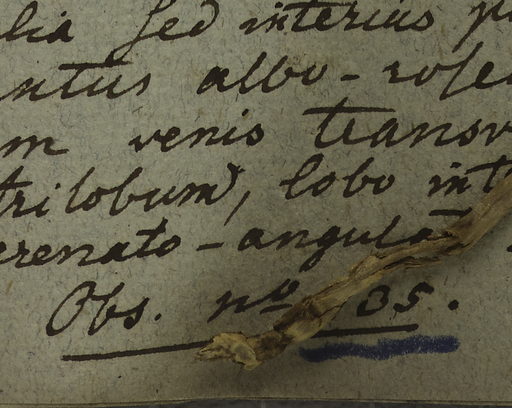 lia sed interius
ntus albo-rose
m venis transv
trilobum, lobo int
crenato-angula
Obs. nº 35.